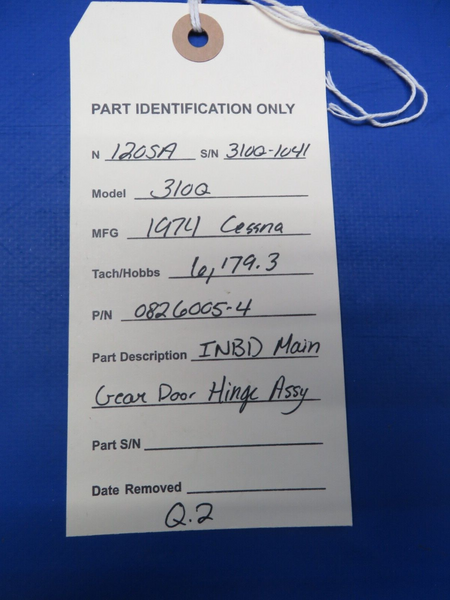 PART IDENTIFICATION ONLY
N 120SA S/N 310Q-1041
Model 310Q
MFG 1974 Cessna
Tach/Hobbs 6,179.3
P/N 0826005-4
Part Description INBD Main
Gear Door Hinge Assy
Part S/N
Date Removed
Q.2